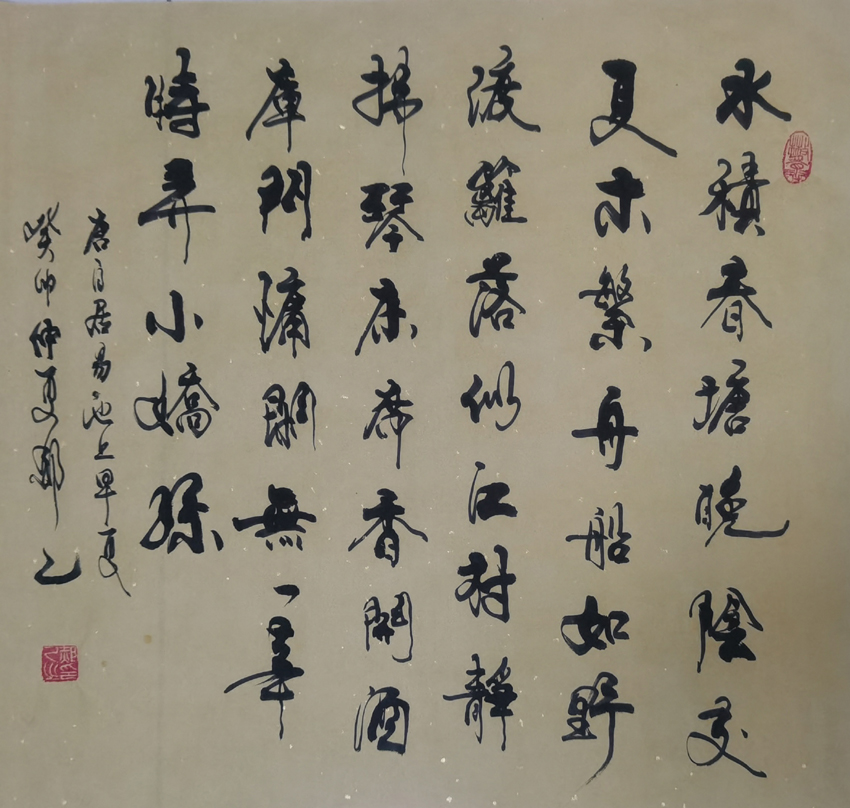 水積春塘晚陰交
夏木繁舟船如野
渡籬落似江村靜
拂琴床席香開酒
庫門慵閒無一事
時弄小嬌孫
唐白居易池上早夏
癸卯仲夏乙